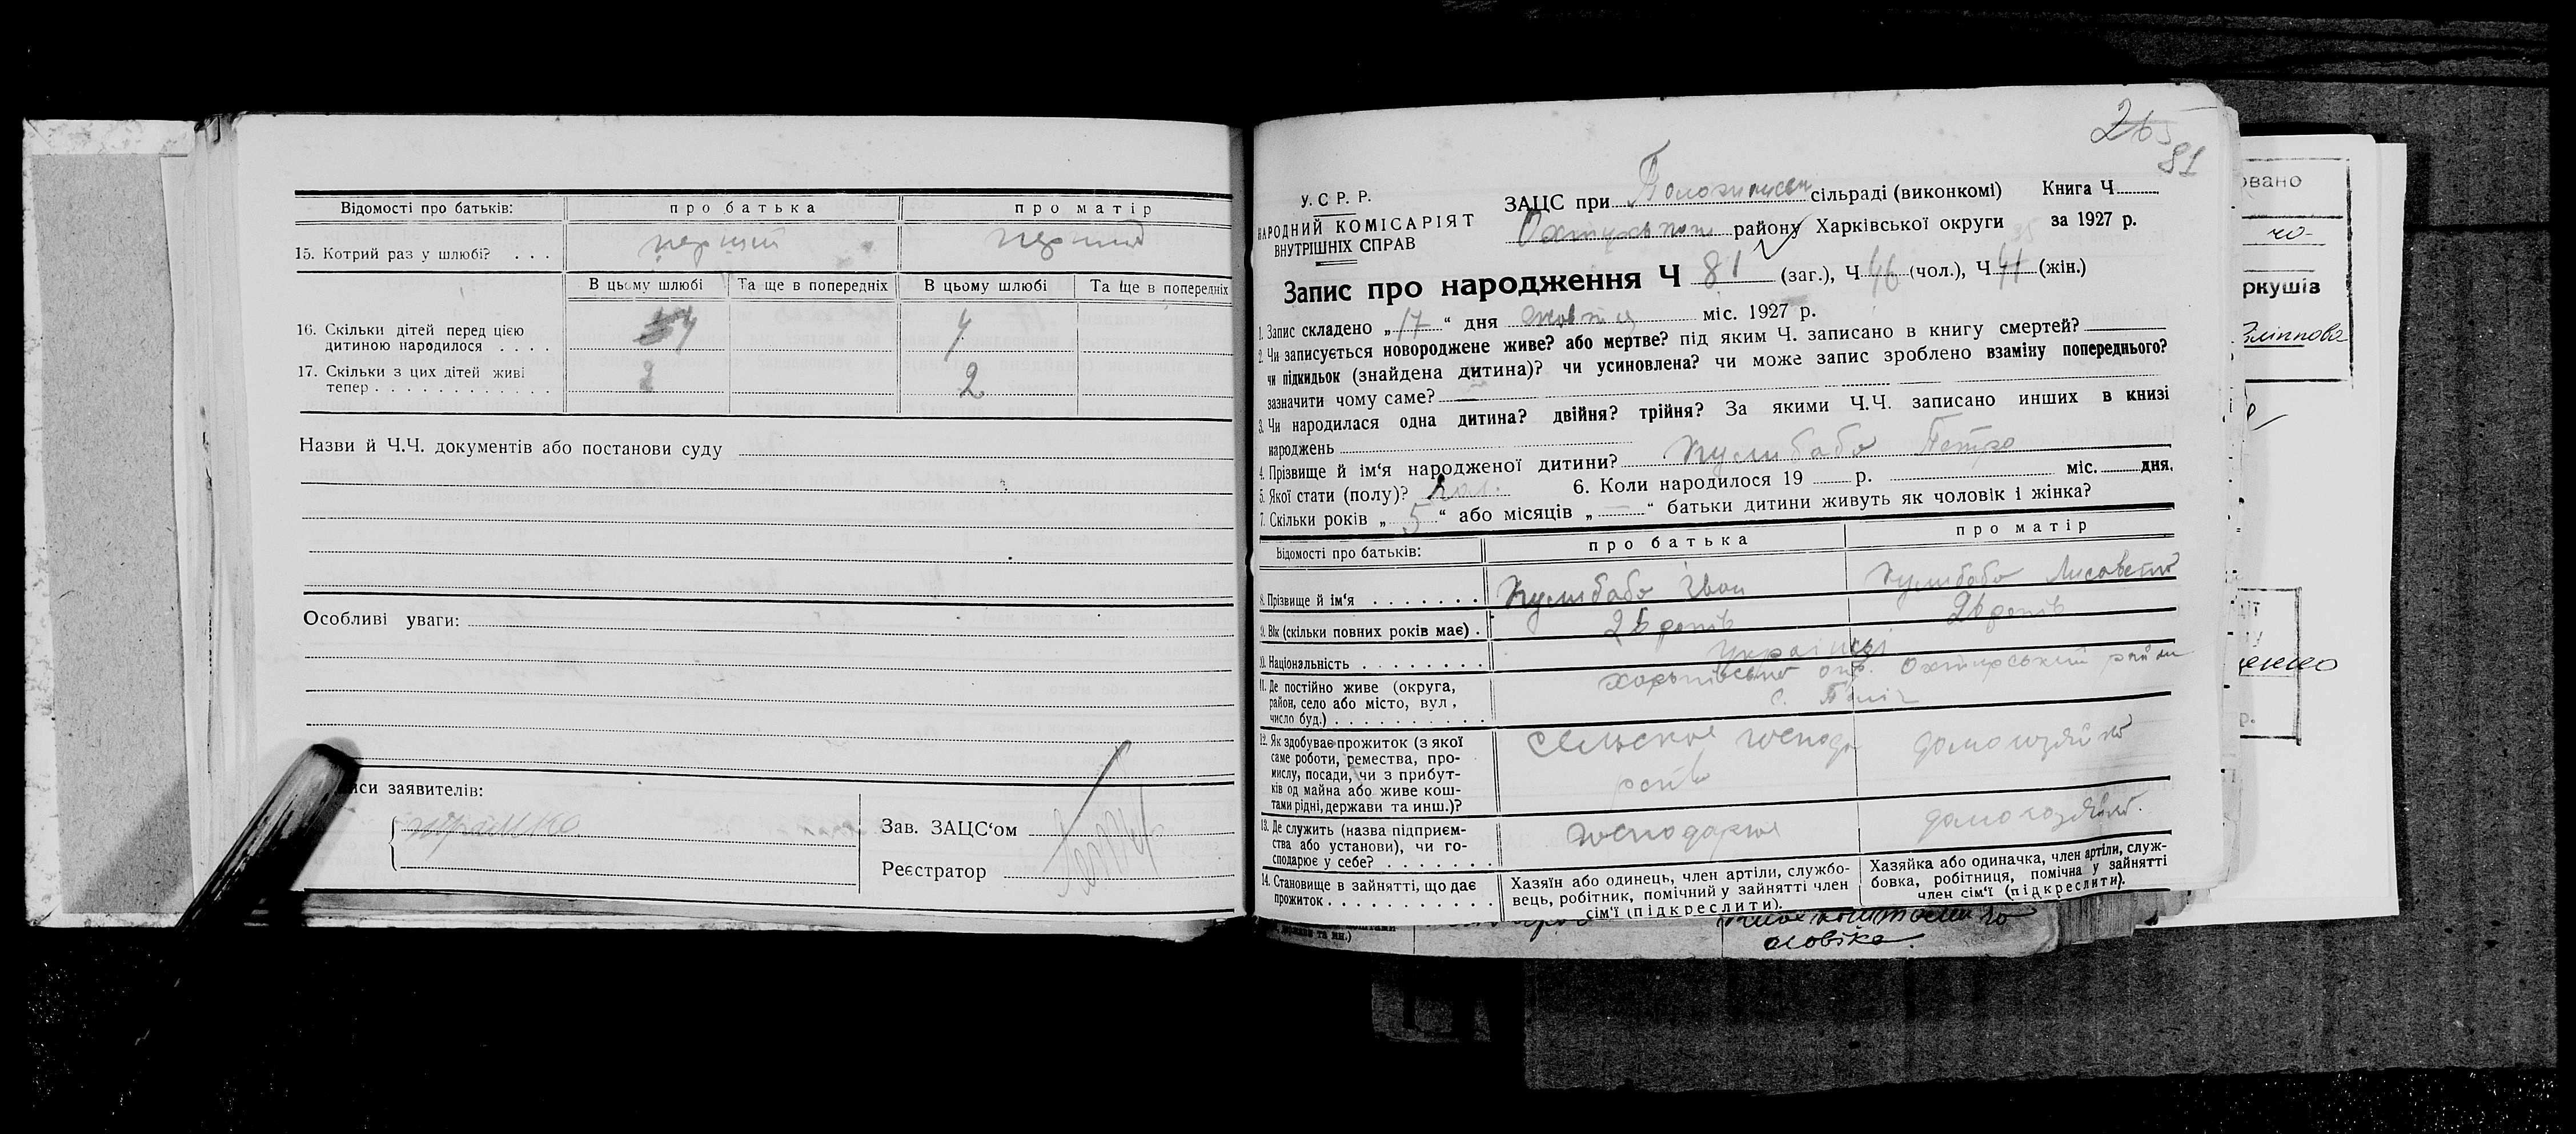 Відомості про батьків: про батька про матір
15. Котрий раз у шлюбі? . . . перший перший
В цьому шлюбі Та ще в попередніх В цьому шлюбі Та ще в попередніх
16. Скільки дітей перед цією
дитиною народилося . . . . 4 4
17. Скільки з цих дітей живі
тепер . . . . . . . . . . . 2 2
Назви й Ч.Ч. документів або постанови суду
Особливі уваги:
иси заявителів:
Зав. ЗАЦС‘ом
Реєстратор
265
81
У. С. Р. Р.
НАРОДНИЙ КОМІСАРІЯТ
ВНУТРІШНІХ СПРАВ
ЗАЦС при сільраді (виконкомі) Книга Ч
району Харківської округи за 1927 р.
Запис про народження Ч 81 (заг.), Ч 46 (чол.), Ч 41 (жін.)
1. Запис складено „17“ дня жовтня міс. 1927 р.
2. Чи записується новороджене живе? або мертве? під яким Ч. записано в книгу смертей?
чи підкидьок (знайдена дитина)? чи усиновлена? чи може запис зроблено взаміну попереднього?
зазначити чому саме?
3. Чи народилася одна дитина? двійня? трійня? За якими Ч.Ч. записано инших в книзі
народжень
4. Прізвище й ім‘я народженої дитини? Кулибаба Петро
5. Якої стати (полу)? чол. 6. Коли народилося 19 р. міс. дня.
7. Скільки років „5“ або місяців „—“ батьки дитини живуть як чоловік і жінка?
Відомості про батьків: про батька про матір
8. Прізвище й ім‘я . . . . . . . Кулибаба Іван Кулибаба Лисавета
9. Вік (скільки повних років має) . 26 років 26 років
10. Національність . . . . . . . . українці
11. Де постійно живе (округа, Харьківська окр. Охтирський район
район, село або місто, вул, с.
число буд.) . . . . . . . . . .
12. Як здобуває прожиток (з якої сельское господа домохозяйка
саме роботи, ремества, про- рство
мислу, посади, чи з прибут-
ків од майна або живе кош-
тами рідні, держави та инш.)?
13. Де служить (назва підприєм- домохозяйка.
ства або установи), чи го-
сподарює у себе? . . . . . . . господарює
14. Становище в зайнятті, що дає
прожиток . . . . . . . . . . .
Хазяїн або одинець, член артіли, службо-
вець, робітник, помічний у зайнятті член
сім‘ї (підкреслити).
Хазяйка або одиначка, член артіли, служ-
бовка, робітниця, помічна у зайнятті
член сім‘ї (підкреслити).
держави та ин.)
овано
ркушів